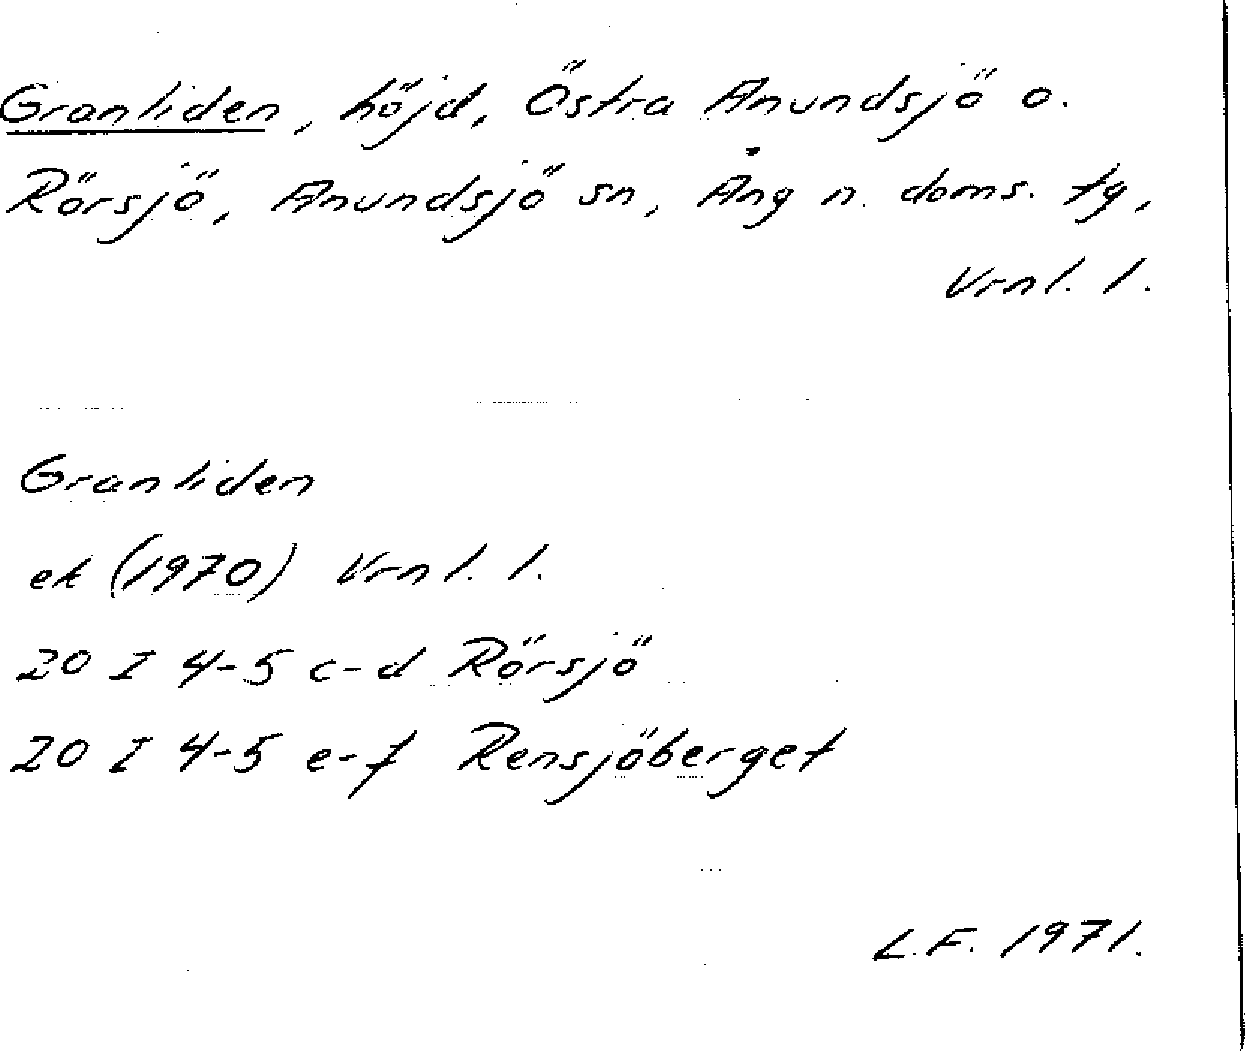 Granliden, höjd, Östra Anundsjö o.
Rörsjö, Anundsjö sn, Ång n. doms. tg,
Vrnl. l.
Granliden
ek (1970) Vrnl. l.
20 I 4-5 c-d Rörsjö
20 I 4-5 e-f Rensjöberget
L.F. 1971.